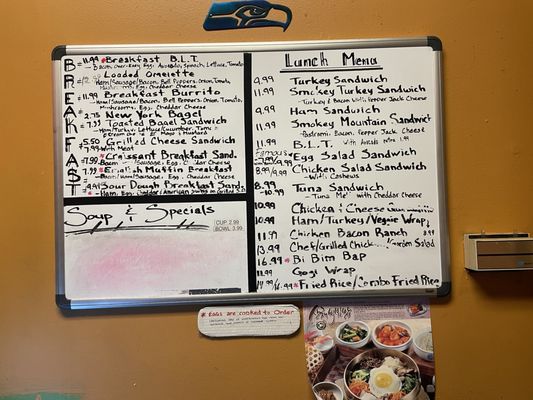 BREAKFAST
11.99 * Breakfast B.L.T.
Bacon, Over-Easy Egg, Avocado, Spinach, Lettuce, Tomato
Loaded Omelette
Ham/Sausage/Bacon, Bell Peppers, Onion, Tomato,
Mushrooms, Egg, Cheddar Cheese
11.99 Breakfast Burrito
Ham/Sausage/Bacon, Bell Peppers, Onion, Tomato,
Mushrooms, Egg, Cheddar Cheese
2.75 New York Bagel
7.99 Toasted Bagel Sandwich
Ham/Turkey, Lettuce/Cucumber, Tomato
5.50 Grilled Cheese Sandwich
7.99 With Meat
7.99 * Croissant Breakfast Sand.
Bacon Sausage, Egg, Cheddar Cheese
7.99 English Muffin Breakfast
Bacon/Ham/Sausage, Egg, Cheddar Cheese
Sour Dough Breakfast Sand
Ham, Egg, Cheddar/American
Soup & Specials
CUP 2.99
BOWL 3.99
Lunch Menu
9.99 Turkey Sandwich
11.99 Smokey Turkey Sandwich
Turkey & Bacon with Pepper Jack Cheese
9.99 Ham Sandwich
11.99 Smokey Mountain Sandwich
Pastrami, Bacon, Pepper Jack Cheese
11.99 B.L.T. With Avocado
Egg Salad Sandwich
8.99/9.99 Chicken Salad Sandwich
With Cashews
8.99 Tuna Sandwich
10.99 "Tuna Melt" with Cheddar Cheese
10.99 Chicken & Cheese
10.99 Ham/Turkey/Veggie Wrap
11.99 Chicken Bacon Ranch
13.99 Chef/Grilled Garden Salad
16.99 * Bi Bim Bap
11.99 Gogi Wrap
* Fried Rice/Combo Fried Rice
* Eggs are cooked to Order